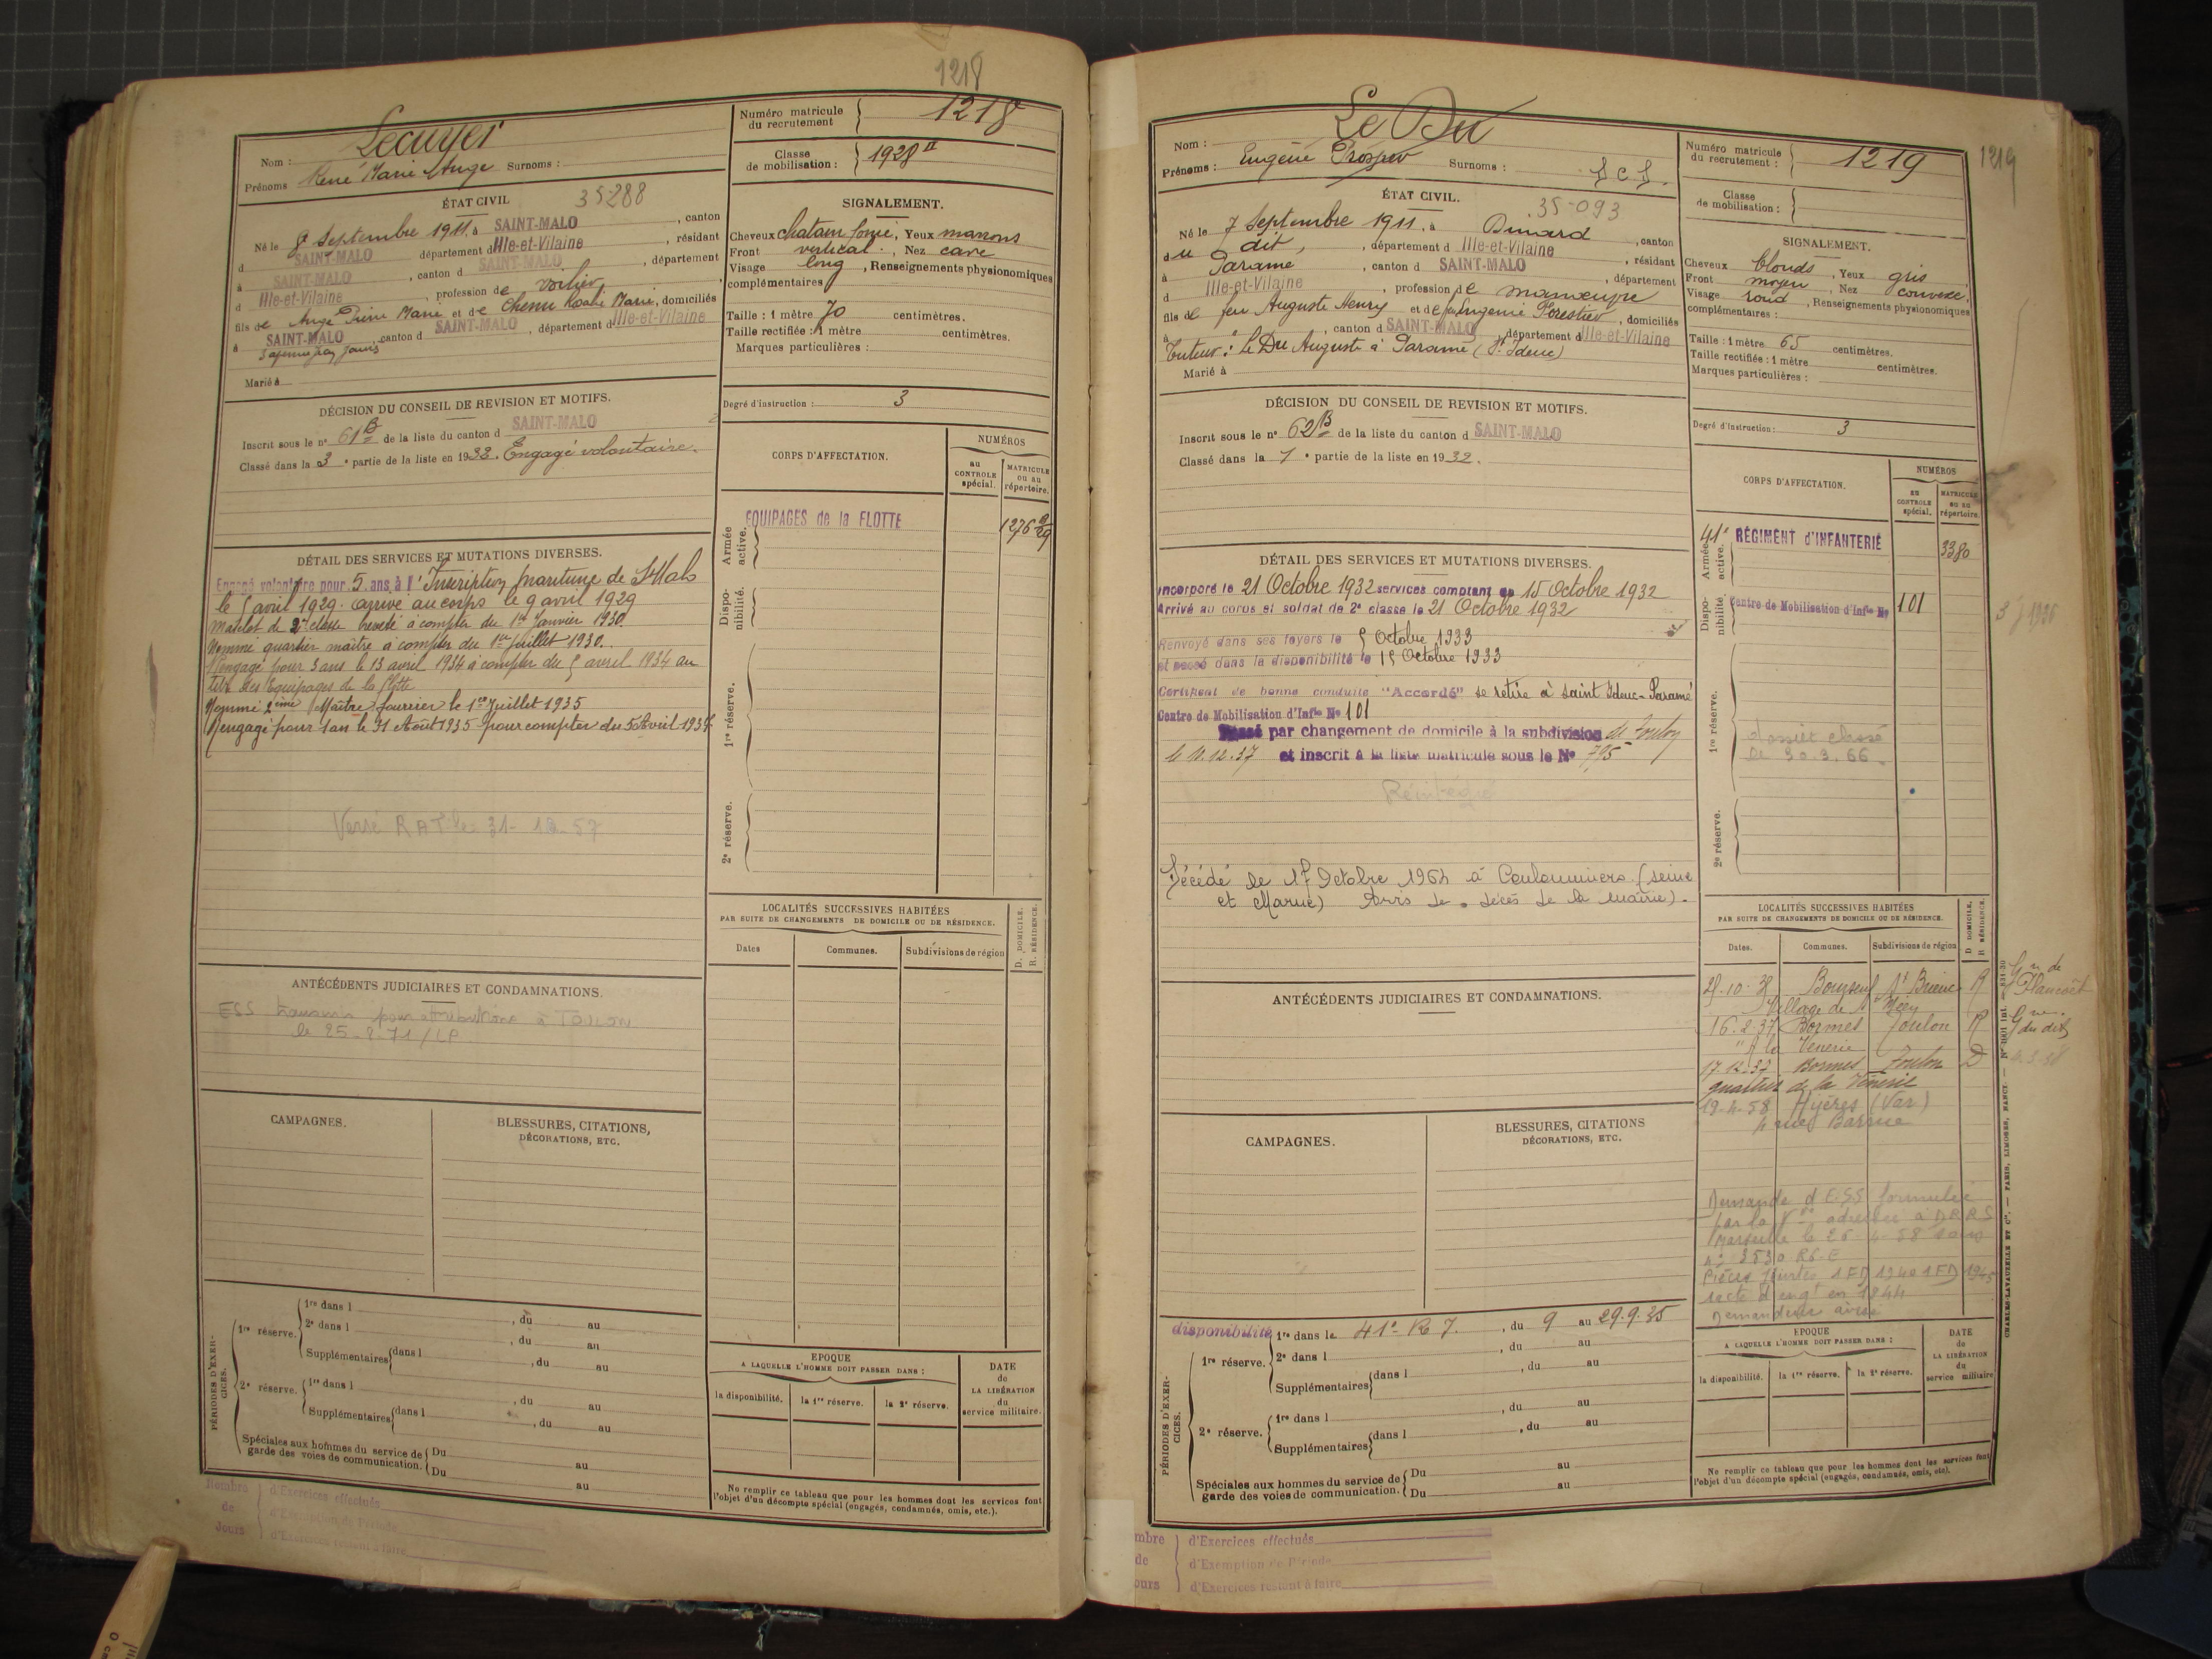 1218
Nom : Lecuyer
Prénoms René Marie Ange Surnoms :
Numéro matricule du recrutement 1218
Classe de mobilisation : 1928 II
ÉTAT CIVIL 35-288
Né le 8 Septembre 1911 à SAINT-MALO, canton
d SAINT-MALO département d Ille-et-Vilaine, résidant
à SAINT-MALO, canton d SAINT-MALO, département
d Ille-et-Vilaine, profession de voilier
fils de Ange Pierre Marie et de Chenu Rosalie Marie, domiciliés
à SAINT-MALO, canton d SAINT-MALO, département d Ille-et-Vilaine
Marié à
SIGNALEMENT.
Cheveux chatain foncé, Yeux marrons
Front vertical, Nez cave
Visage long, Renseignements physionomiques
complémentaires
Taille : 1 mètre 70 centimètres.
Taille rectifiée : 1 mètre centimètres.
Marques particulières :
Degré d'instruction : 3
DÉCISION DU CONSEIL DE REVISION ET MOTIFS.
Inscrit sous le n° 61 B de la liste du canton d SAINT-MALO
Classé dans la 3e partie de la liste en 1932. Engagé volontaire.
CORPS D'AFFECTATION.
NUMÉROS
au CONTROLE spécial.
MATRICULE ou au répertoire.
Armée active.
EQUIPAGES de la FLOTTE
1276
29
Dispo-nibilité.
1re réserve.
2e réserve.
DÉTAIL DES SERVICES ET MUTATIONS DIVERSES.
Engagé volontaire pour 5 ans à l'Inscription maritime de St Malo
le 5 avril 1929. arrivé au corps le 9 avril 1929
Matelot de 2e classe breveté à compter du 1er Janvier 1930.
Nommé quartier maître à compter du 1er Juillet 1930.
Rengagé pour 3 ans le 13 avril 1934 à compter du 5 avril 1934 au
titre des Equipages de la flotte
Nommé 2ème Maître fourrier le 1er Juillet 1935
Rengagé pour 1 an le 31 Août 1935 pour compter du 5 Avril 193
Versé RAT le 31-12-57
LOCALITÉS SUCCESSIVES HABITÉES
PAR SUITE DE CHANGEMENTS DE DOMICILE OU DE RÉSIDENCE.
D. DOMICILE.
R. RÉSIDENCE.
Dates Communes. Subdivisions de région
ANTÉCÉDENTS JUDICIAIRES ET CONDAMNATIONS.
ESS transmis pour attributions à TOULON
le 25-8-71/LP
CAMPAGNES.
BLESSURES, CITATIONS, DÉCORATIONS, ETC.
PÉRIODES D'EXERCICES.
1re réserve. 1re dans l, du au
2e dans l, du au
Supplémentaires dans l, du au
2e réserve. 1re dans l, du au
Supplémentaires dans l, du au
Spéciales aux hommes du service de garde des voies de communication. Du au
Du au
EPOQUE
A LAQUELLE L'HOMME DOIT PASSER DANS :
la disponibilité. la 1re réserve. la 2e réserve.
DATE de LA LIBÉRATION du service militaire.
Ne remplir ce tableau que pour les hommes dont les services font
l'objet d'un décompte spécial (engagés, condamnés, omis, etc.).
Nombre de Jours
d'Exercices effectués
d'Exemption de Période
d'Exercices restant à faire
Nom : Le Du
Prénoms : Eugène Prosper Surnoms :
Numéro matricule du recrutement : 1219
1219
Classe de mobilisation :
ÉTAT CIVIL. 35-093
Né le 7 Septembre 1911, à Dinard, canton
du dit, département d Ille-et-Vilaine, résidant
à Paramé, canton d SAINT-MALO, département
d Ille-et-Vilaine, profession de manœuvre
fils de feu Auguste Henry et de feu Eugénie Forestier, domiciliés
à, canton d SAINT-MALO, département d Ille-et-Vilaine
Tuteur : Le Du Auguste à Paramé (St Ideuc)
Marié à
SIGNALEMENT.
Cheveux blonds, Yeux gris
Front moyen, Nez convexe,
Visage rond, Renseignements physionomiques
complémentaires :
Taille : 1 mètre 65 centimètres.
Taille rectifiée : 1 mètre centimètres.
Marques particulières :
Degré d'instruction : 3
DÉCISION DU CONSEIL DE REVISION ET MOTIFS.
Inscrit sous le n° 62 B de la liste du canton d SAINT-MALO
Classé dans la 1e partie de la liste en 1932.
CORPS D'AFFECTATION.
NUMÉROS
au CONTROLE spécial.
MATRICULE ou au répertoire.
Armée active.
41e RÉGIMENT d'INFANTERIE 3380
Dispo-nibilité.
Centre de Mobilisation d'Infie No 101
1re réserve.
dossier classé
le 30.3.66.
2e réserve.
DÉTAIL DES SERVICES ET MUTATIONS DIVERSES.
Incorporé le 21 Octobre 1932 services comptant du 15 Octobre 1932
Arrivé au corps et soldat de 2e classe le 21 Octobre 1932
Renvoyé dans ses foyers le 5 Octobre 1933
et passé dans la disponibilité le 15 Octobre 1933
Certificat de bonne conduite "Accordé" se retire à Saint Ideuc-Paramé
Centre de Mobilisation d'Infie No 101
Passé par changement de domicile à la subdivision de Toulon
le 11.12.37 et inscrit à la liste matricule sous le No 795
Réintégré
Décédé le 17 Octobre 1964 à Coulommiers (Seine
et Marne) Avis de décès de la mairie).
LOCALITÉS SUCCESSIVES HABITÉES
PAR SUITE DE CHANGEMENTS DE DOMICILE OU DE RÉSIDENCE.
D DOMICILE.
R RÉSIDENCE.
Dates. Communes. Subdivisions de région
25-10-35 Bourseul St Brieuc R Gie de Plancoët
Village de St Méen
16.2.37 Bormes Toulon R Gie du dit
" à la Venerie
17.12.37 Bormes Toulon D
quartier de la Vénerie
19-4-58 Hyères (Var)
4 rue Barrue
Demande d'ESS formulée
par la adressée à DRRS
Marseille le 26-4-58 sous
n° 3530 RS-E
Pièces jointes 1 FD 1940 1 FD 1945
acte d'engt en 1944
Demandeur avisé
ANTÉCÉDENTS JUDICIAIRES ET CONDAMNATIONS.
CAMPAGNES.
BLESSURES, CITATIONS DÉCORATIONS, ETC.
PÉRIODES D'EXERCICES.
disponibilité 1re dans le 41e R I., du 9 au 29.9.35
1re réserve. 2e dans l, du au
Supplémentaires dans l, du au
2e réserve. 1re dans l, du au
Supplémentaires dans l, du au
Spéciales aux hommes du service de garde des voies de communication. Du au
Du au
EPOQUE
A LAQUELLE L'HOMME DOIT PASSER DANS :
la disponibilité. la 1re réserve. la 2e réserve.
DATE de LA LIBÉRATION du service militaire
Ne remplir ce tableau que pour les hommes dont les services font
l'objet d'un décompte spécial (engagés, condamnés, omis, etc).
CHARLES-LAVAUZELLE ET Cie. — PARIS, LIMOGES, NANCY.
mbre de ours
d'Exercices effectués
d'Exemption de Période
d'Exercices restant à faire